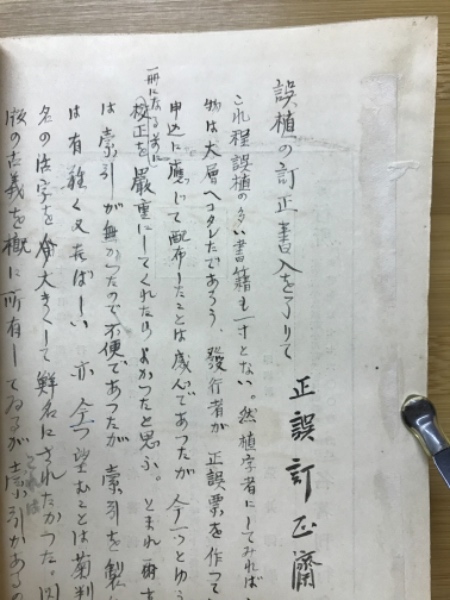 誤植の訂正書入を了りて
正誤訂正齋
これ程誤植の多い書籍も一寸とない。然植字者にしてみれば
物は大層ヘコタレたであらう、發行者が正誤票を作って
申込に應じて配布したことは感心であつたが 今一つとゆう
一冊になる前に
校正を嚴重にしてくれたらよかつたと思ふ。とまれ
は索引が無かつたので不便であつたが 索引を製
は有難く又 ばしい 亦 今一つ望むことは菊判
名の活字を今大きくして鮮名にされたかつた。
これは
版の古義を概に所有してゐるが索引があるの